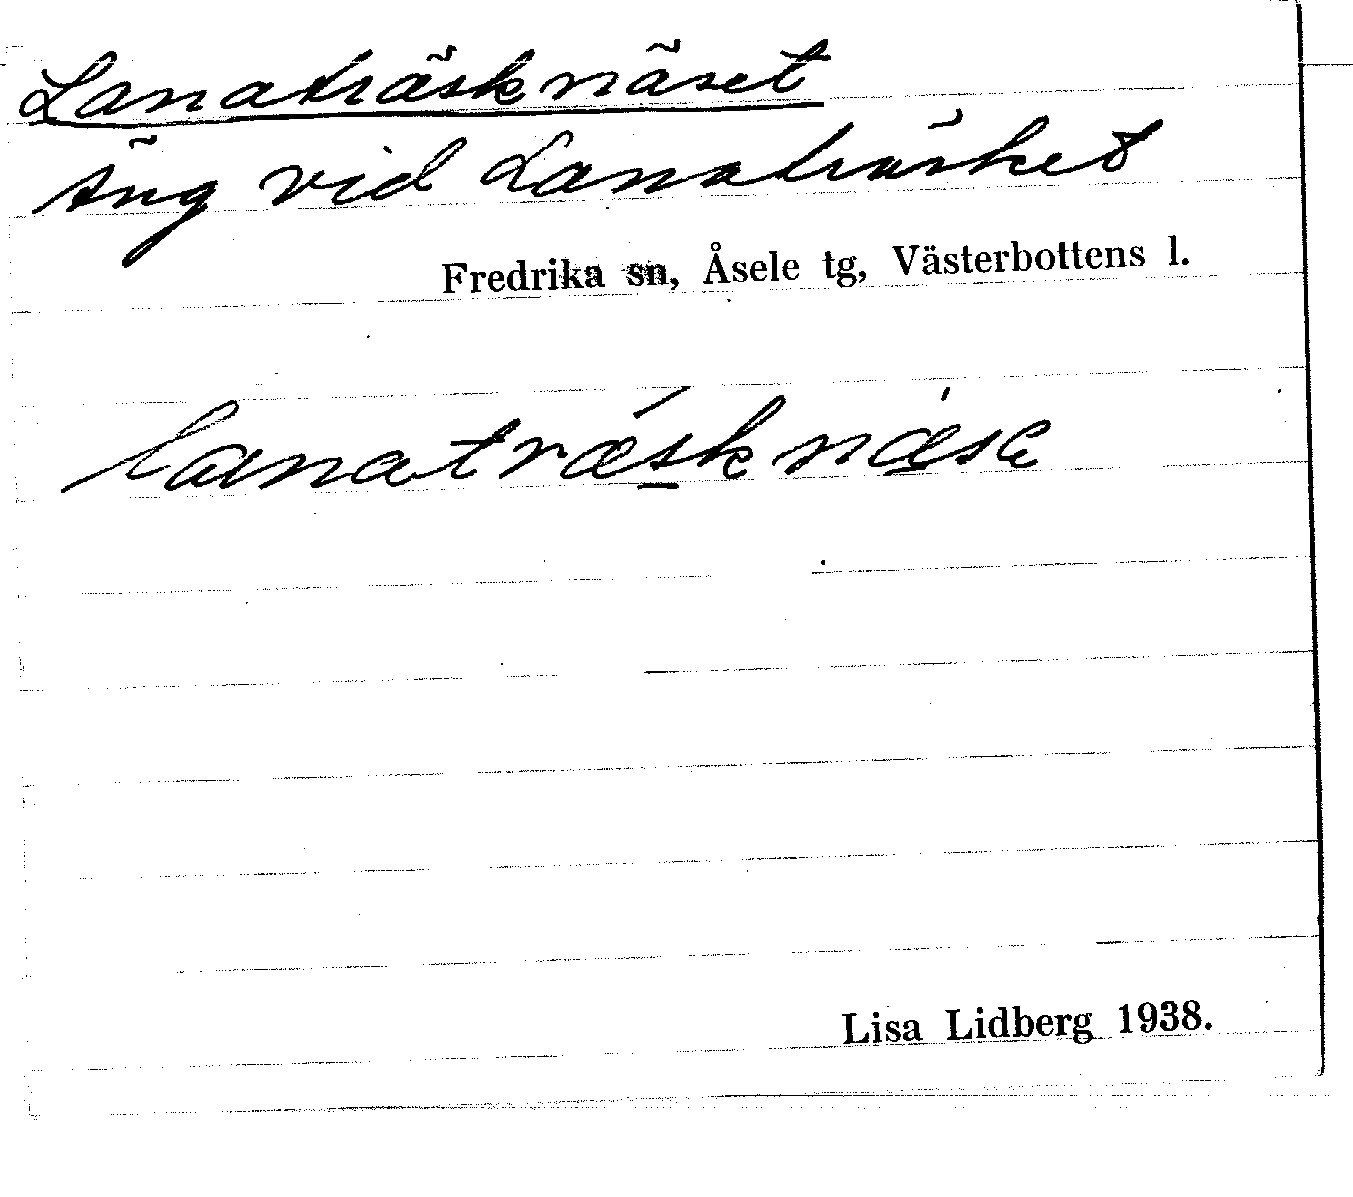 Lanaträsknäset
Äng vid Lanaträsket
Fredrika sn, Åsele tg, Västerbottens l.
lanatræ´sknæ`se
Lisa Lidberg 1938.